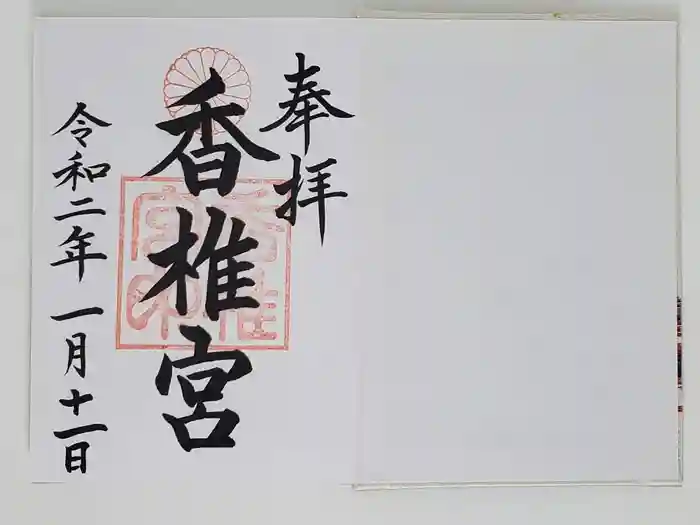 奉拝
香椎宮
令和二年一月十一日
香椎宮印